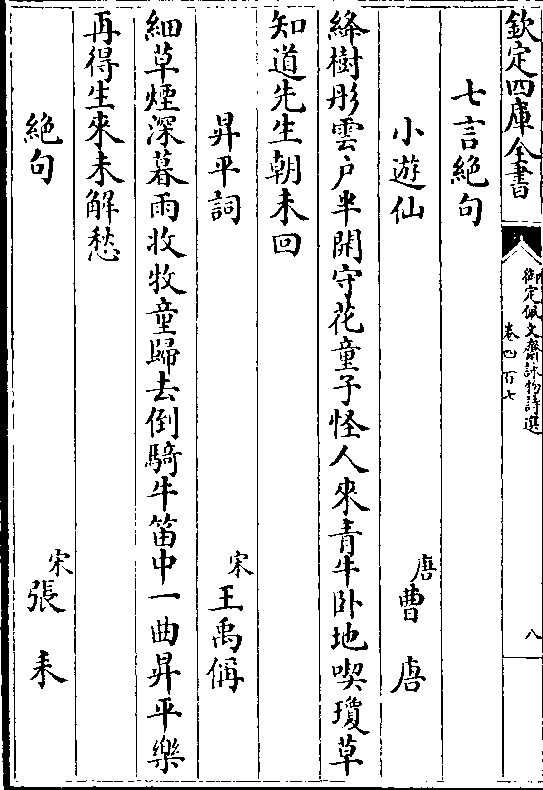 欽定四庫全書
御定佩文齋詠物詩選
卷四百七
八
七言絶句
小遊仙
唐
曹唐
絳樹彤雲户半開守花童子怪人來青牛卧地喫瓊草
知道先生朝未回
昇平詞
宋
王禹偁
細草煙深暮雨收牧童歸去倒騎牛笛中一曲昇平樂
再得生來未解愁
絶句
宋
張耒